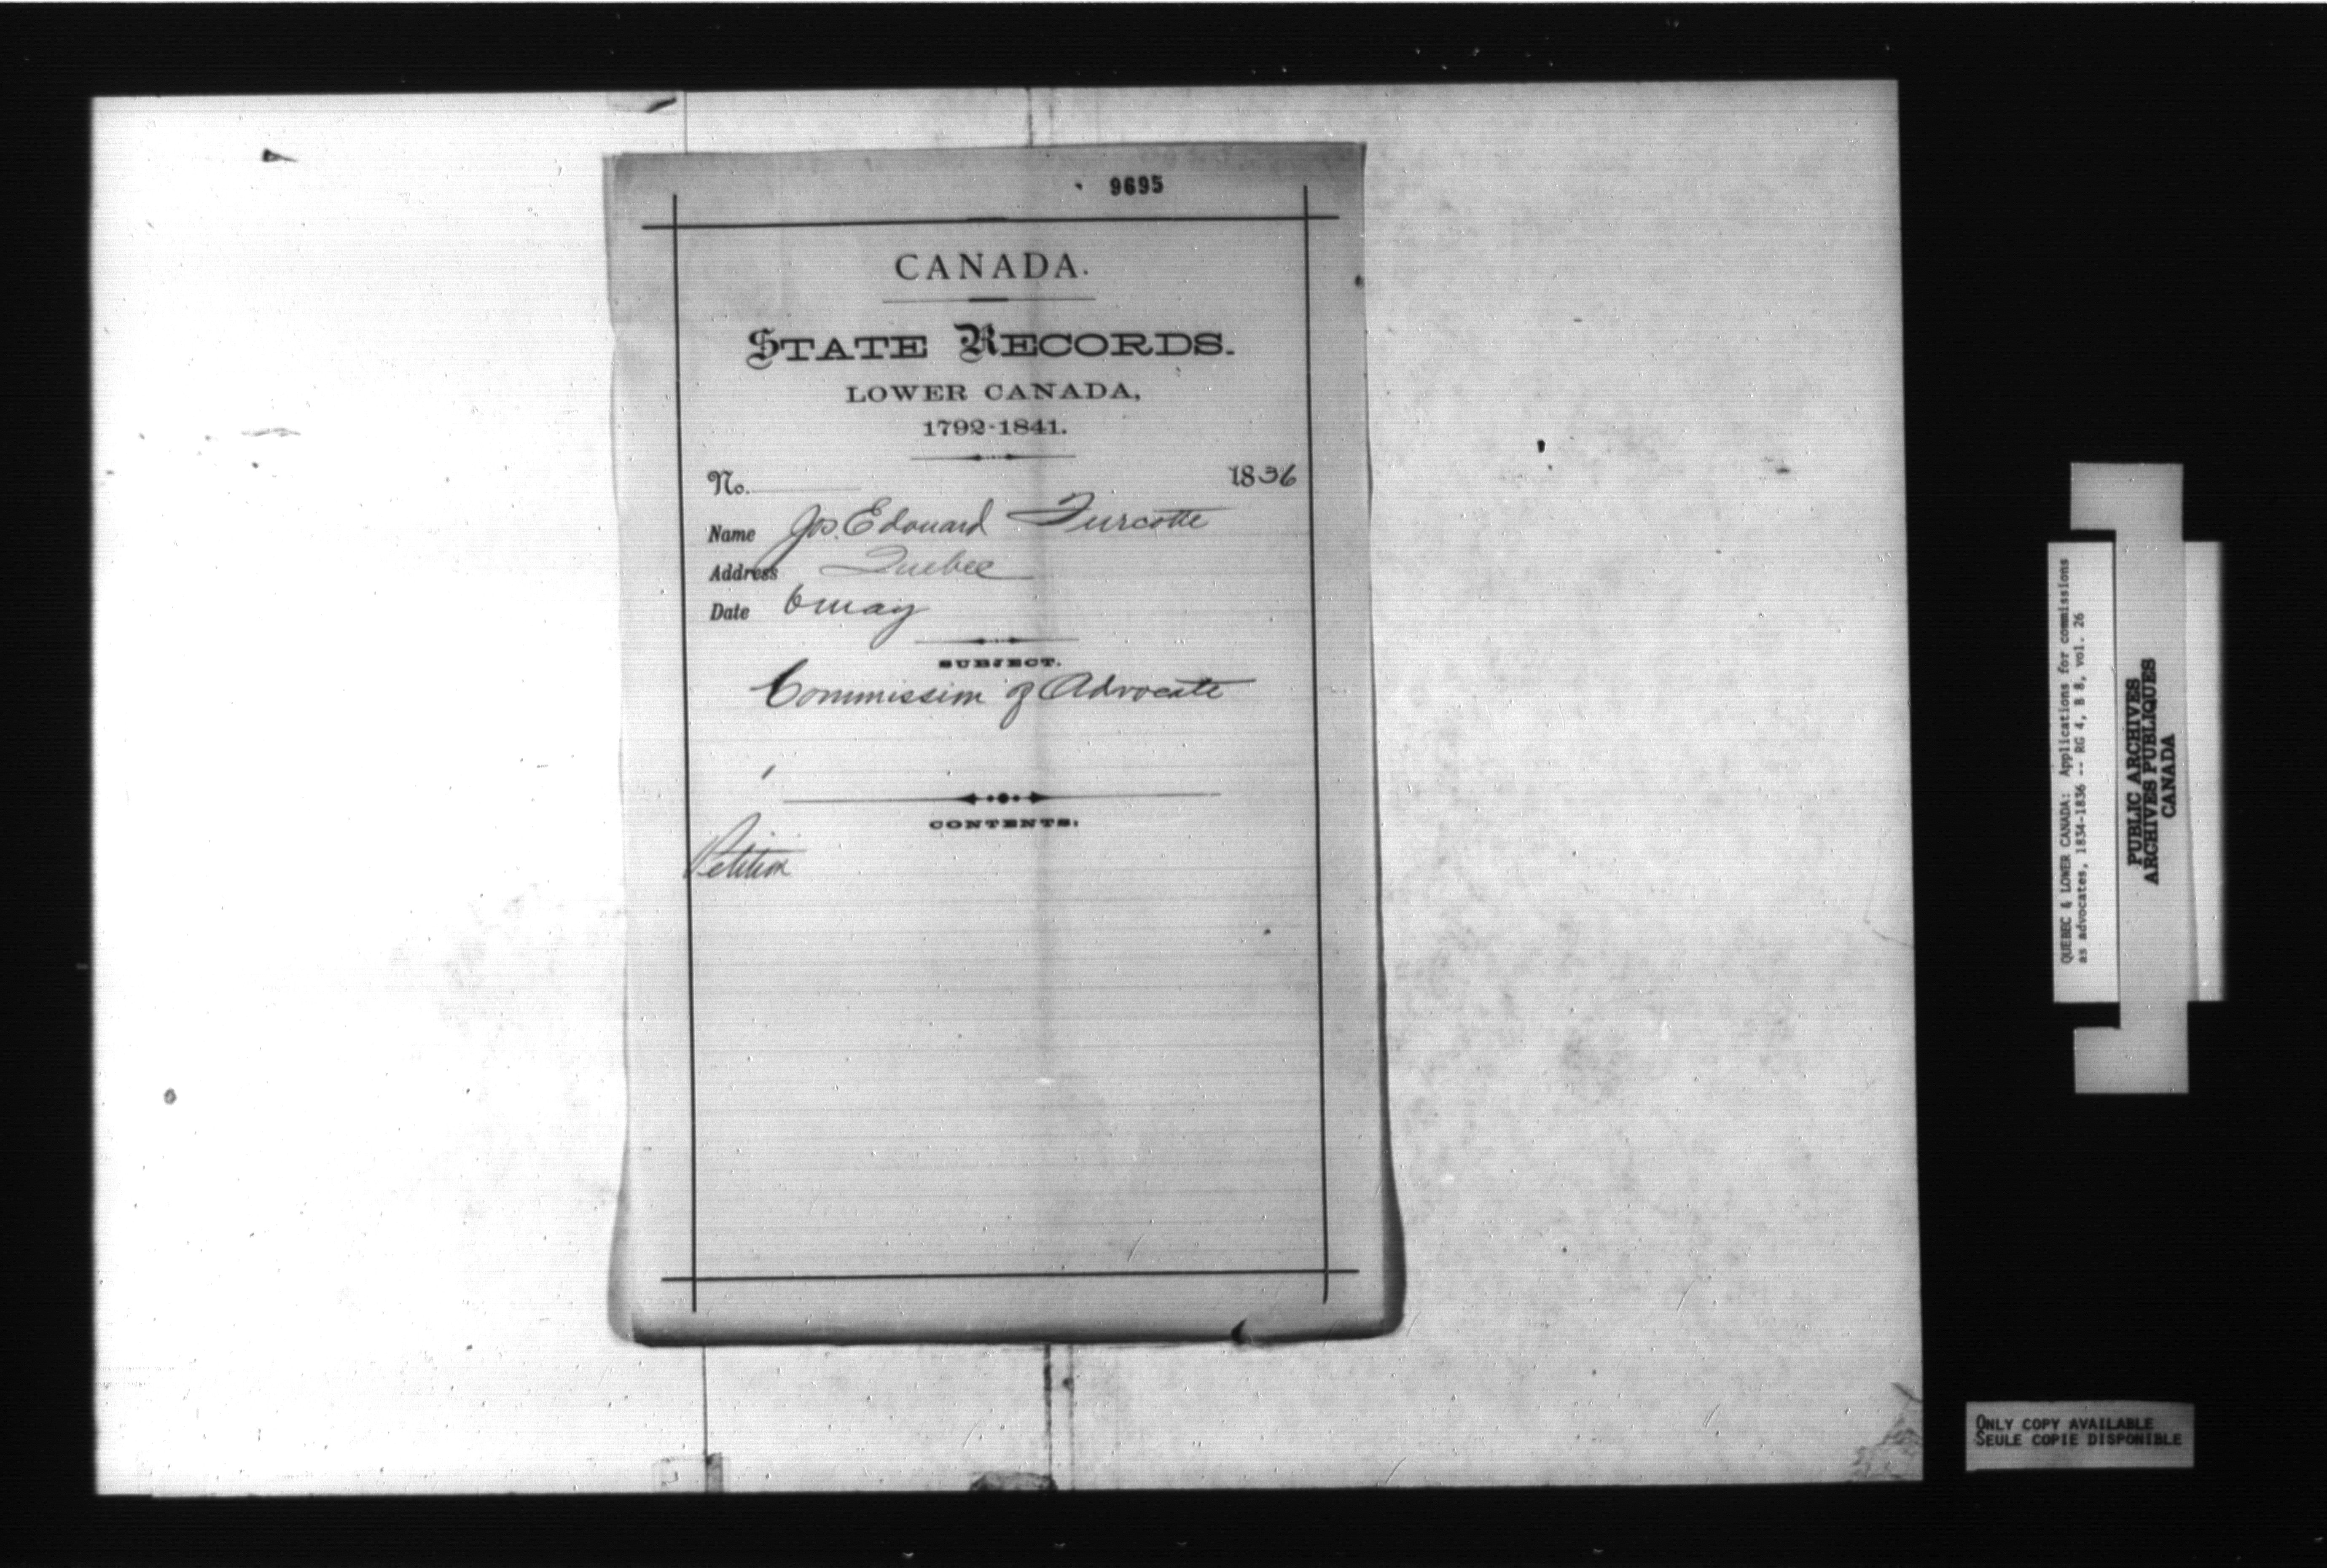 9695
CANADA.
STATE RECORDS.
LOWER CANADA,
1792-1841.
No. 1836
Name Jos. Edouard Turcotte
Address Quebec
Date 6 May
SUBJECT.
Commission of Advocate
CONTENTS:
Petition
QUEBEC & LOWER CANADA: Applications for commissions
as advocates, 1834-1836 -- RG 4, B 8, vol. 26
PUBLIC ARCHIVES
ARCHIVES PUBLIQUES
CANADA
ONLY COPY AVAILABLE
SEULE COPIE DISPONIBLE